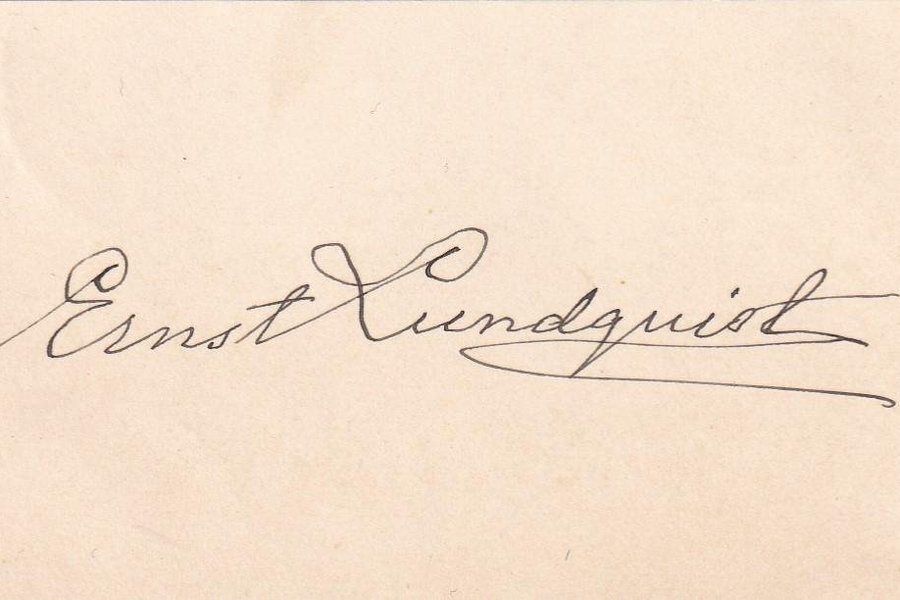 Ernst Lundquist